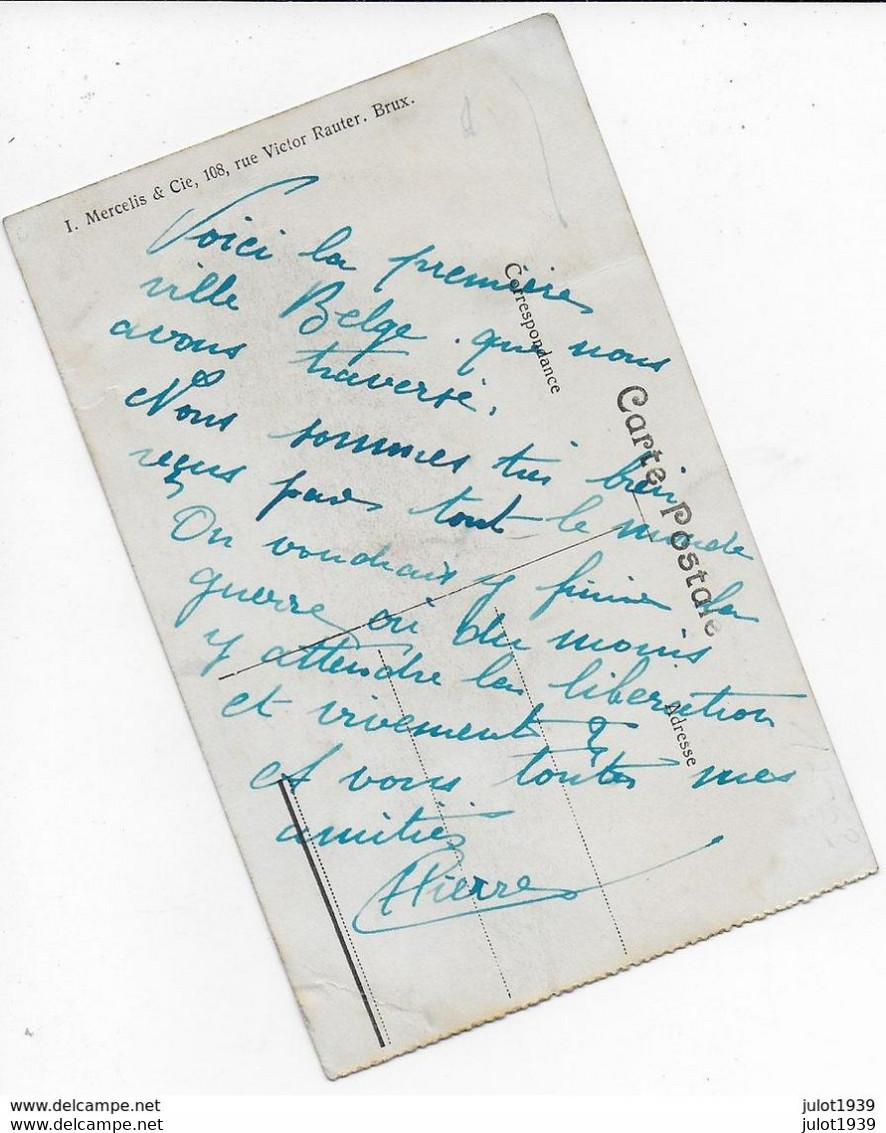 I. Mercelis & Cie, 108, rue Victor Rauter. Brux.
Voici la première
ville Belge que nous
avons traversé.
Nous sommes très bien
reçus par tout le monde
On voudrais y finir la
guerre ou du moins
y attendre la libération
et vivement
A vous toutes mes
amitiés
Pierre
Correspondance
Carte Postale
Adresse
www.delcampe.net
www.delcampe.net
julot1939
julot1939